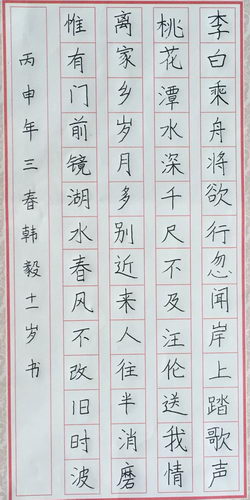 李白乘舟将欲行忽闻岸上踏歌声
桃花潭水深千尺不及汪伦送我情
离家乡岁月多别近来人往半消磨
惟有门前镜湖水春风不改旧时波
丙申年三春韩毅十二岁书